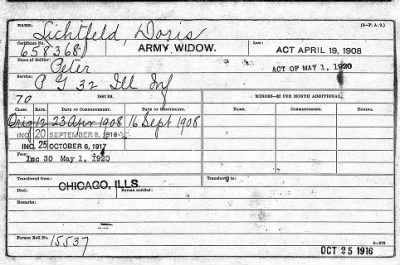 NAME: Lichtfeld, Doris (3-P. A. 2.)
Certificate No. 658368 ARMY WIDOW. Law: ACT APRIL 19, 1908
Name of Soldier: Peter ACT OF MAY 1, 1920
Service: P G 32 Ill Inf
70 ISSUE. MINORS—$2 PER MONTH ADDITIONAL.
CLASS. RATE. DATE OF COMMENCEMENT. DATE OF CERTIFICATE. COMMENCING. ENDING.
Orig 12 23 Apr 1908 16 Sept 1908
INC 20 SEPTEMBER 8, 1916
INC. 25 OCTOBER 6, 1917
Inc 30 May 1, 1920
Transferred from: CHICAGO, ILLS. Transferred to:
Died: Bureau notified:
Remarks:
Former Roll No. 15537
OCT 25 1916